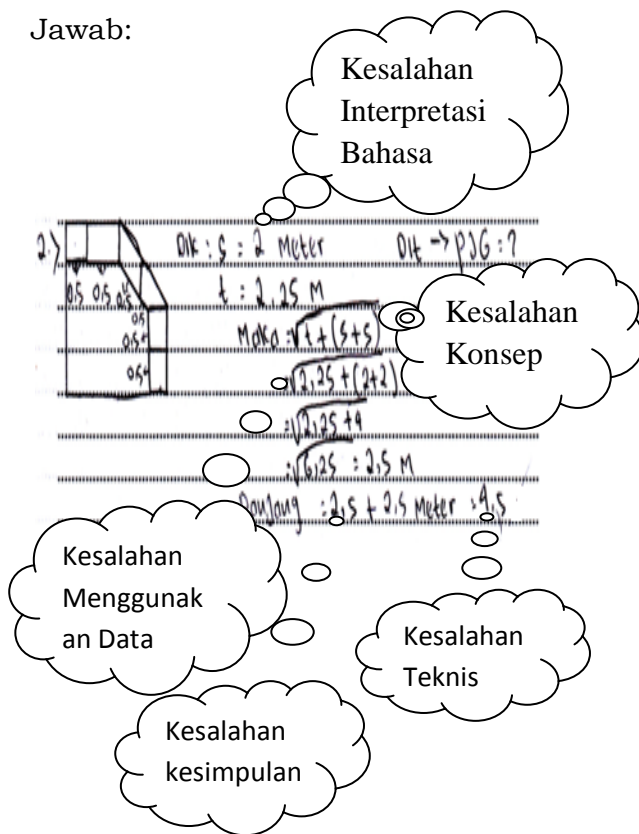 Jawab:
Kesalahan
Interpretasi
Bahasa
2.) Dik : s = 2 Meter Dit → PJG : ?
0.5 0.5 0.5 t = 2,25 M
0.5
Maka = √t + (s+s)
0.5
= √2,25 + (2+2)
0.5
= √2,25 + 4
= √6,25 = 2,5 M
Panjang = 2,5 + 2,5 Meter = 4,5
Kesalahan
Konsep
Kesalahan
Menggunak
an Data
Kesalahan
Teknis
Kesalahan
kesimpulan